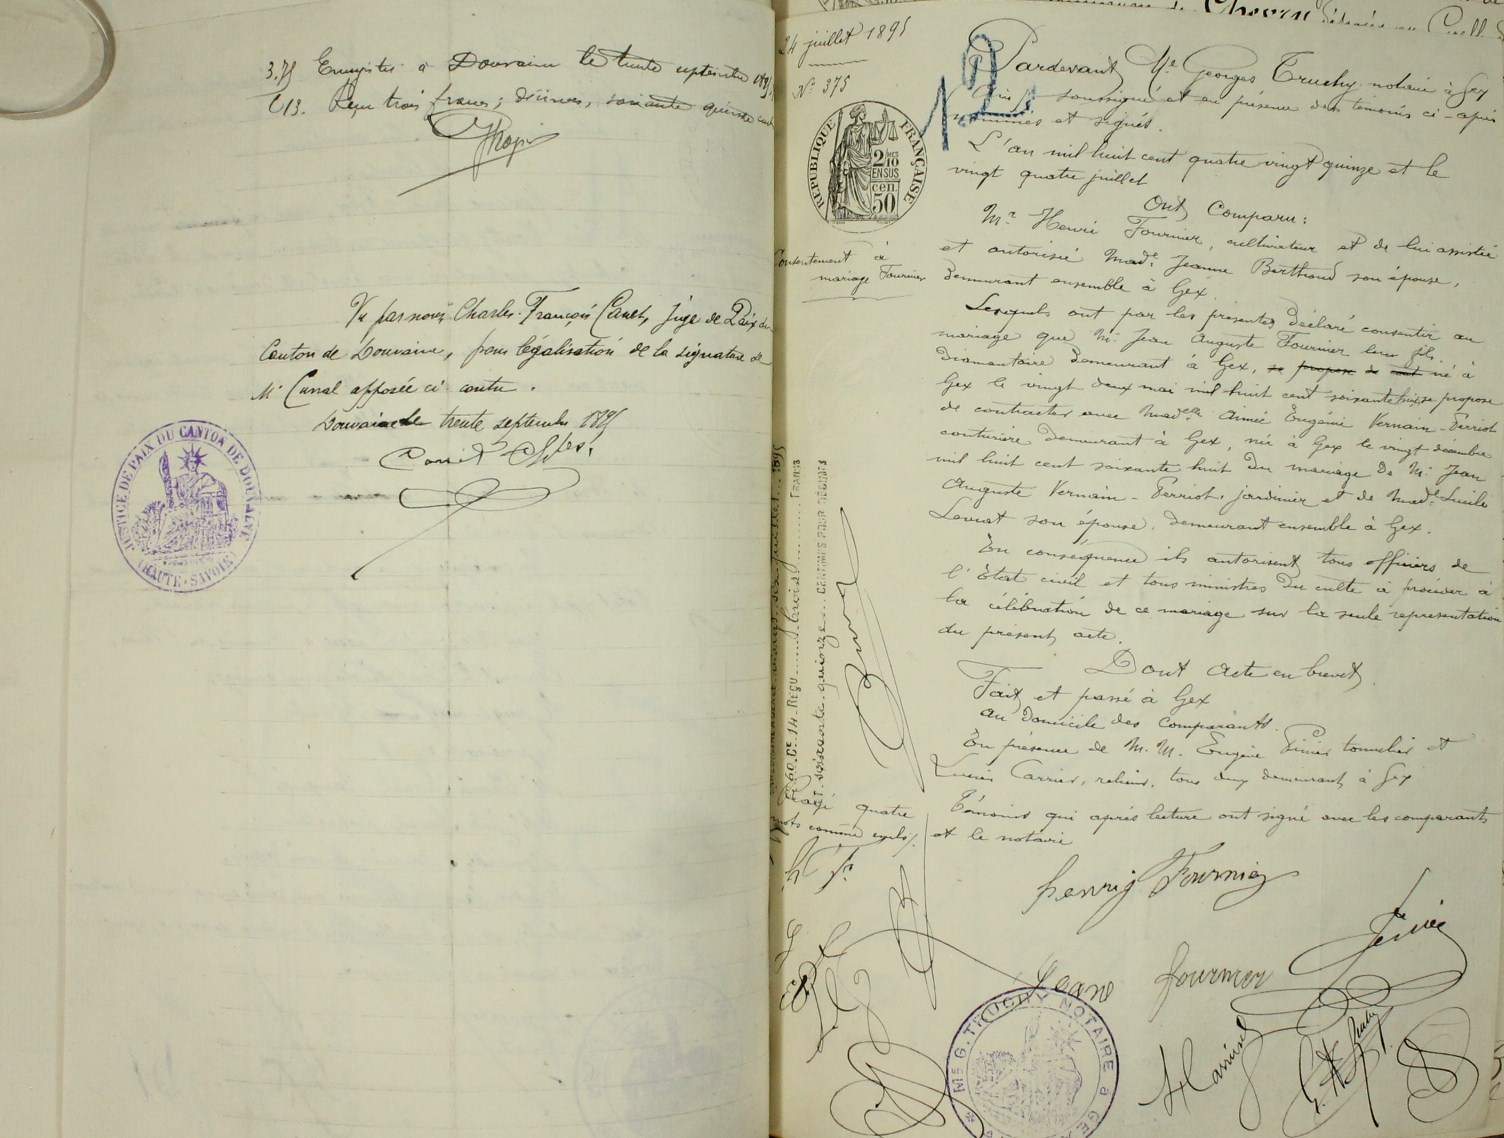 3.75 Enregistré à Douvaine le trente septembre 1895
C 13. Reçu trois francs, décimes, soixante quinze cent
Vu par nous Charles-François Canet, Juge de Paix du
Canton de Douvaine, pour légalisation de la signature de
Mr apposée ci contre.
Douvaine le trente septembre 1895
JUSTICE DE PAIX DU CANTON DE DOUVAINE
(HAUTE-SAVOIE)
24 juillet 1895
No 375
RÉPUBLIQUE FRANÇAISE
2/10 EN SUS
50 cen.
Consentement à
mariage Fournier
Pardevant Me Georges Truchy, notaire à Gex
soussigné et en présence des témoins ci-après
nommés et signés.
L'an mil huit cent quatre vingt quinze et le
vingt quatre juillet
Ont Comparu:
Mr Henri Fournier, cultivateur et de lui assistée
et autorisée Made Jeanne Berthoud son épouse,
demeurant ensemble à Gex.
Lesquels ont par les présentes déclaré consentir au
mariage que Mr Jean Auguste Fournier leur fils.
diamantaire demeurant à Gex, se propose de né à
Gex le vingt deux mai mil huit cent soixante huit se propose
de contracter avec Madelle Aimée Eugénie Vernain-Perriot
couturière demeurant à Gex, née à Gex le vingt décembre
mil huit cent soixante huit du mariage de Mr Jean
Auguste Vernain-Perriot, jardinier et de Made Lucile
son épouse, demeurant ensemble à Gex.
En conséquence ils autorisent tous officiers de
l'Etat civil et tous ministres du culte à procéder à
la célébration de ce mariage sur la seule représentation
du présent acte.
Dont Acte en brevet.
Fait et passé à Gex
au domicile des comparants.
En présence de M. M. Eugène tonnelier et
Lucien Carrier, relieur, tous deux demeurant à Gex
Témoins qui après lecture ont signé avec les comparants
et le notaire
Rayé quatre
mots comme nuls
F° 60 Ce 14. REÇU trois FRANCS
soixante quinze CENTIMES POUR DÉCIMES
henri Fournier
fournier
Me G. TRUCHY NOTAIRE à GEX